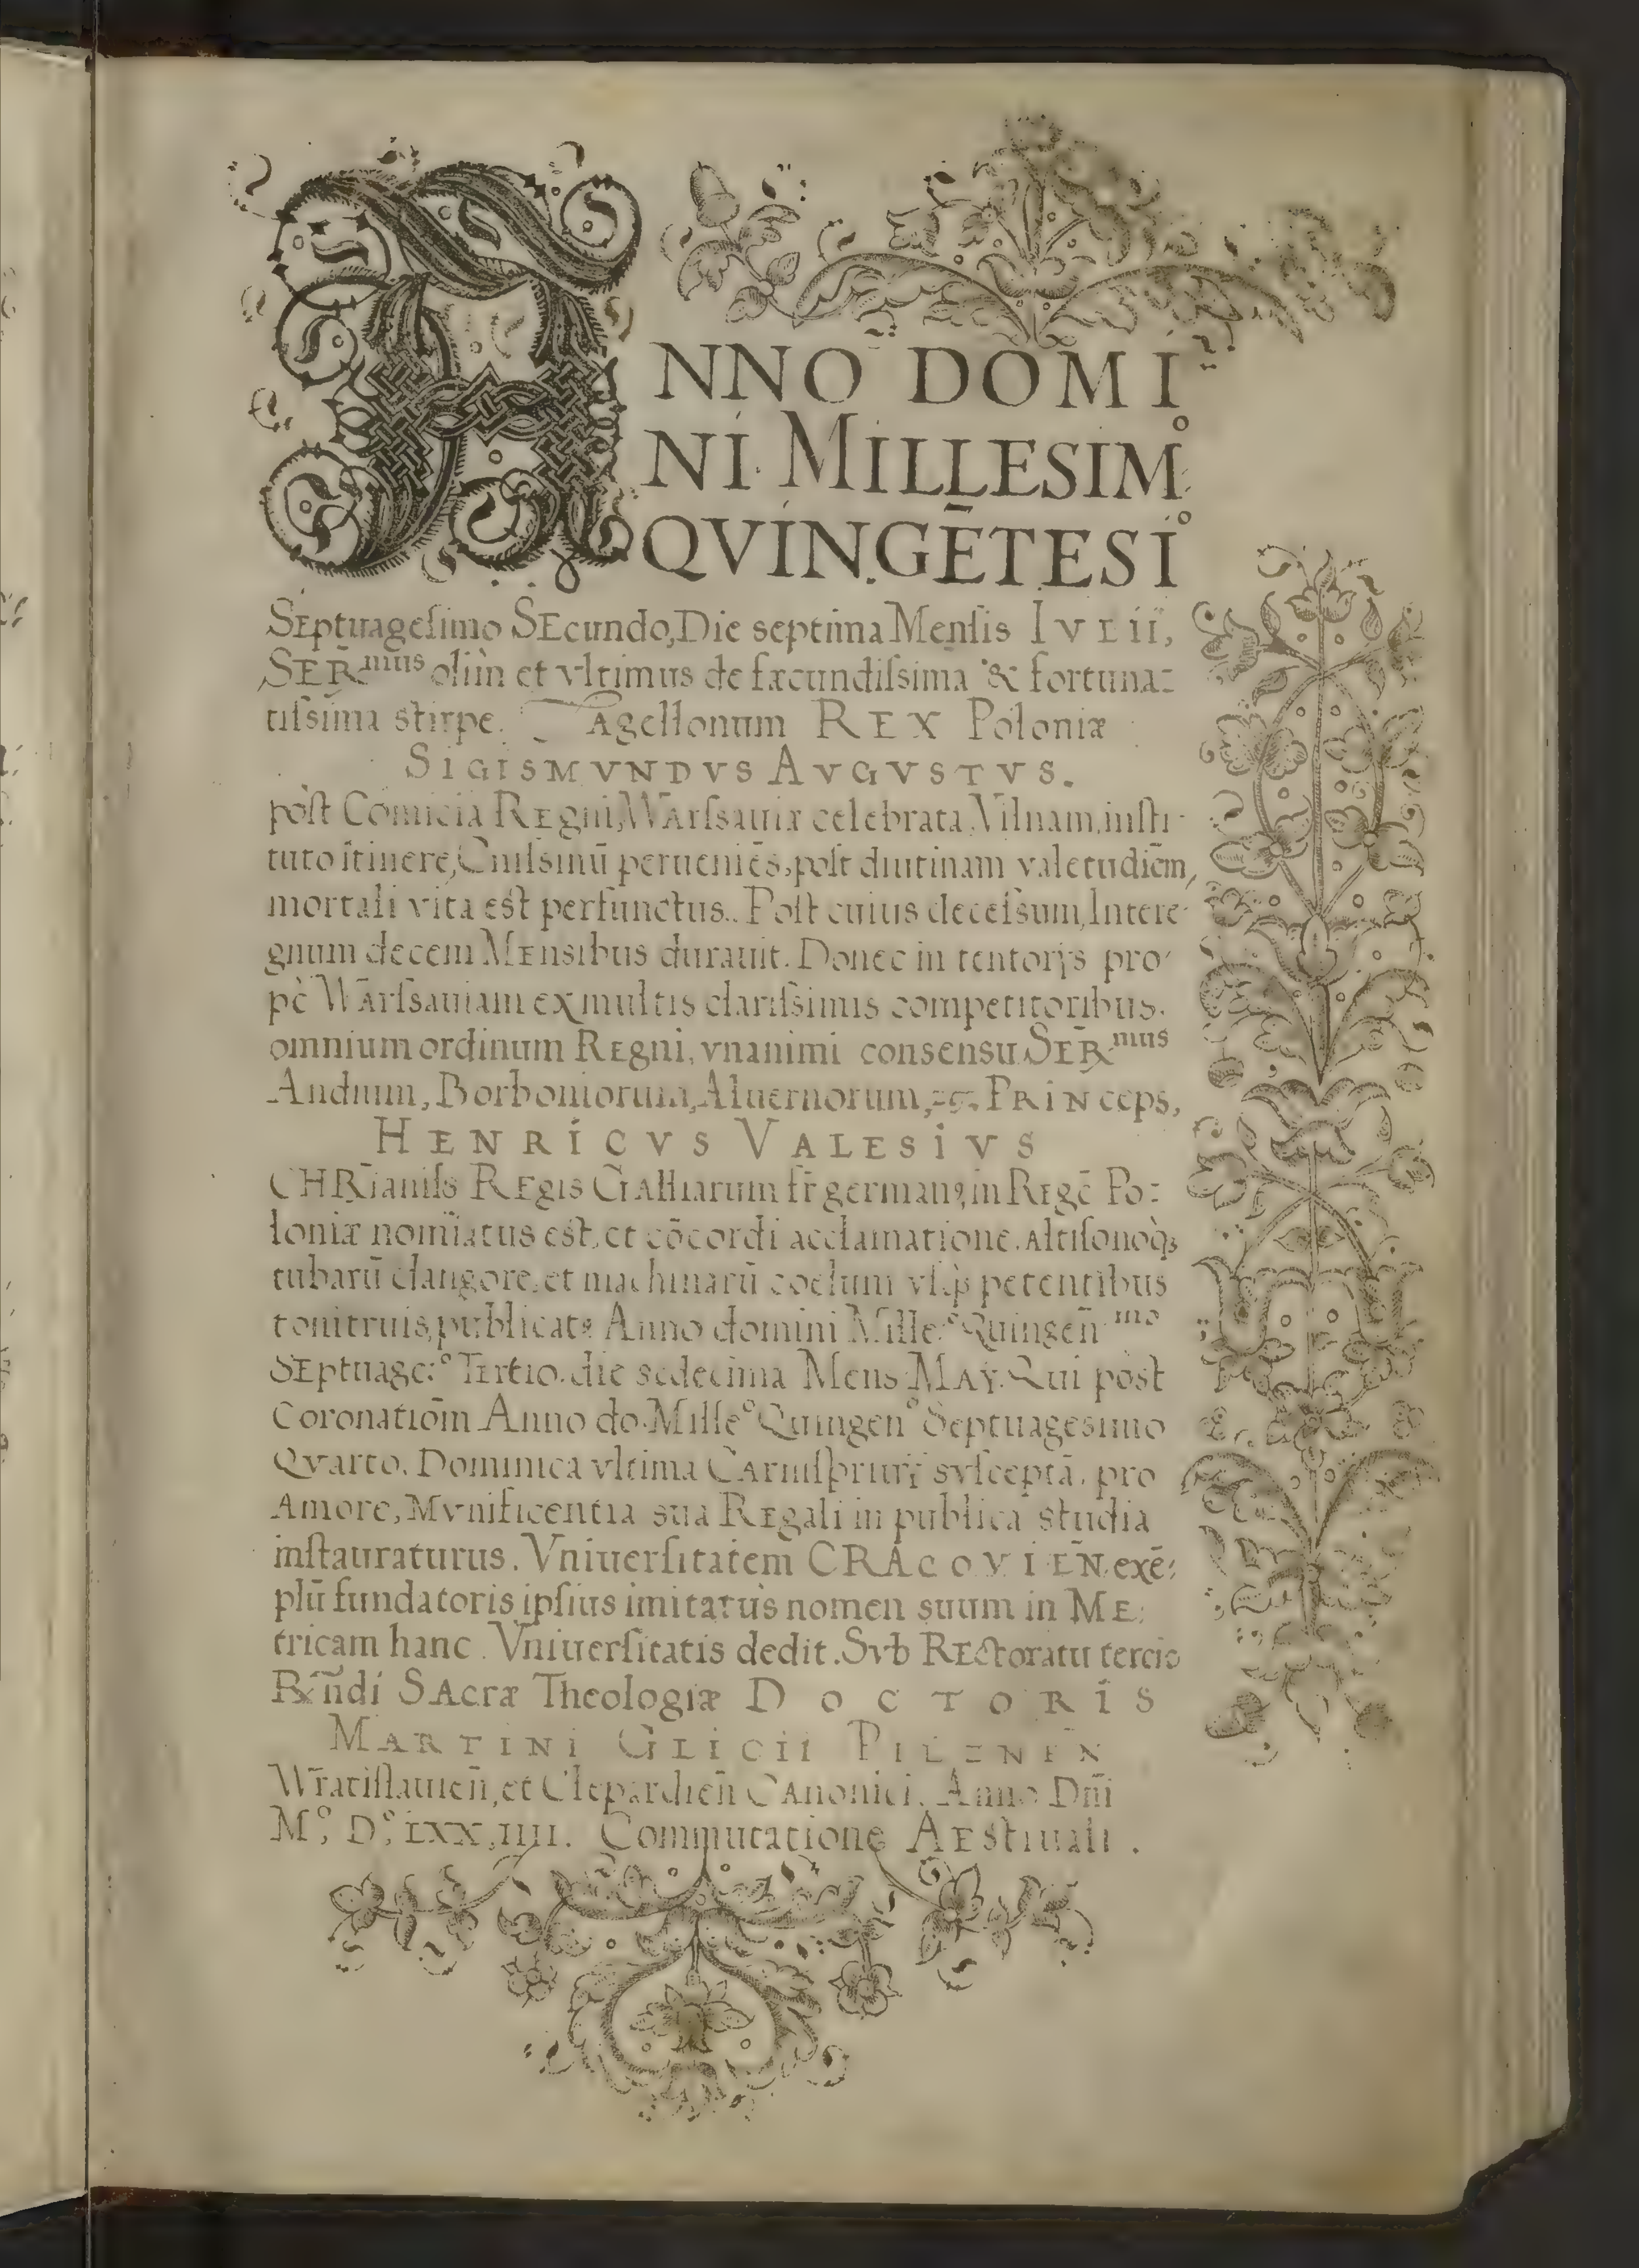 ANNO DOMI
NI MILLESIMº
QVINGĒTESIº
Septuagesimo SEcundo, Die septima Mensis IVLII,
SER̄mus olim et vltimus de fæcundissima & fortuna=
tissima stirpe Iagellonum REX Poloniæ
SIGISMVNDVS AVGVSTVS.
post Comicia REgni, WArssauiæ celebrata, Vilnam, insti-
tuto itinere, Cnissinū perueniēs, post diutinam valetudiēm,
mortali vita est perfunctus. Post cuius decessum, Intere-
gnum decem MEnsibus durauit. Donec in tentorijs pro-
pe WArssauiam ex multis clarissimis competitoribus.
omnium ordinum REgni, vnanimi consensu SER̄mus
Andium, Borboniorum, Aluernorum, PRINceps,
HENRICVS VALESIVS
CHR̄ianiss REgis GAlliarum fr̄ germanꝰ, in REgē Po=
loniæ nomiatus est, et cōcordi acclamatione, altisonoqȝ
tubarū clangore, et machinarū coelum vsqȝ petentibus
tonitruis, publicatꝰ Anno domini Mille:º Quingen̄ mo
SEptuage:º TErtio. die sedecima Mens MAY. Qui post
Coronatiōm Anno do. Milleº Quingenº Septuagesimo
QVarto. Dominica vltima CArnispriuij svsceptā, pro
Amore, MVnificentia sua REgali in publica studia
instauraturus. Vniuersitatem CRACOVIEN̄. exē-
plū fundatoris ipsius imitatus nomen suum in ME-
tricam hanc Vniuersitatis dedit. Svb REctoratu tercio
R̄n̄di SAcræ Theologiæ DOCTORIS
MARTINI GLICII PILZNEN
Wr̄atislauien̄, et Clepardien̄ CAnonici. Anno Dn̄i
Mº, Dº, LXX, IIII. Commutatione AEstiuali.